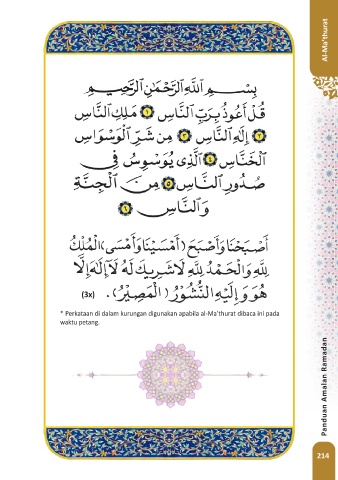 Al-Ma'thurat
بِسْمِ اللَّهِ الرَّحْمَنِ الرَّحِيمِ
قُلْ أَعُوذُ بِرَبِّ النَّاسِ ١ مَلِكِ النَّاسِ
٢ إِلَهِ النَّاسِ ٣ مِن شَرِّ الْوَسْوَاسِ
الْخَنَّاسِ ٤ الَّذِى يُوَسْوِسُ فِى
صُدُورِ النَّاسِ ٥ مِنَ الْجِنَّةِ
وَالنَّاسِ ٦
أَصْبَحْنَا وَأَصْبَحَ (أَمْسَيْنَا وَأَمْسَى) الْمُلْكُ
لِلَّهِ وَالْحَمْدُ لِلَّهِ لَا شَرِيكَ لَهُ لَآ إِلَهَ إِلَّا
هُوَ وَإِلَيْهِ النُّشُوْرُ (الْمَصِيْرُ). (3x)
* Perkataan di dalam kurungan digunakan apabila al-Ma'thurat dibaca ini pada
waktu petang.
Panduan Amalan Ramadan
214